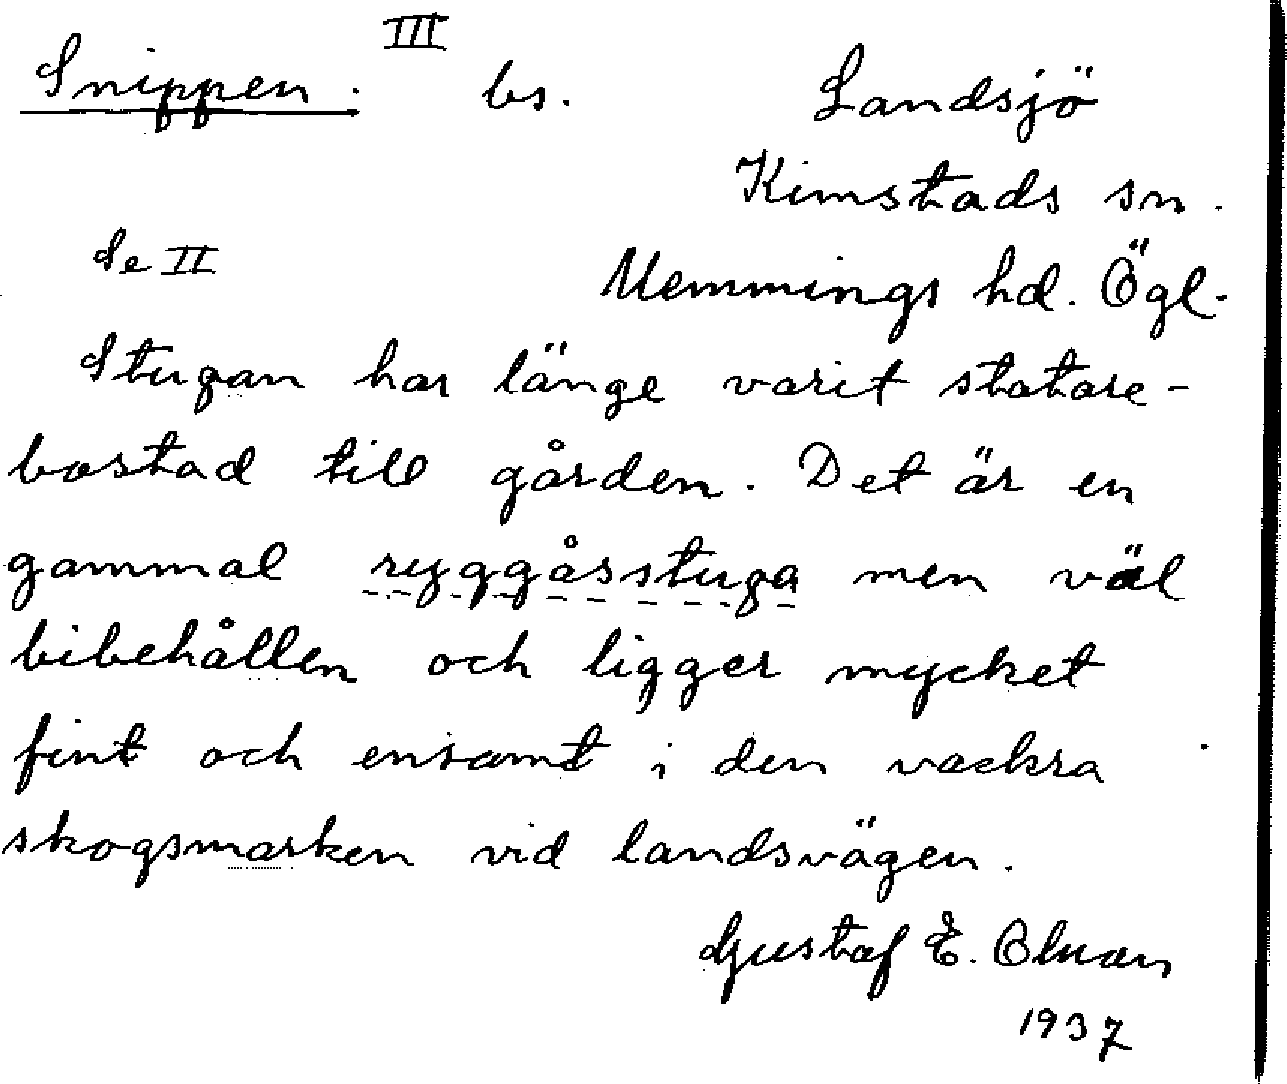 III
Snippen. bs. Landsjö
Kimstads sn.
Se II Memmings hd. Ögl.
Stugan har länge varit statare-
bostad till gården. Det är en
gammal ryggåsstuga men väl
bibehållen och ligger mycket
fint och ensamt i den vackra
skogsmarken vid landsvägen.
Gustaf E. Olsson
1937